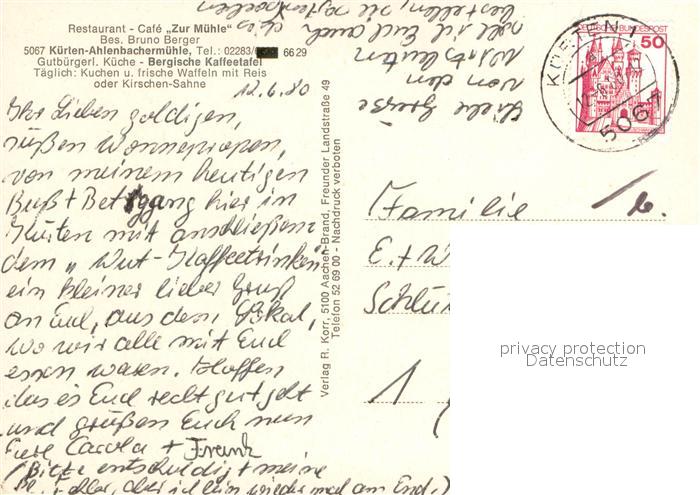 Restaurant - Café „Zur Mühle"
Bes. Bruno Berger
5067 Kürten-Ahlenbachermühle, Tel.: 02283/ 6629
Gutbürgerl. Küche - Bergische Kaffeetafel
Täglich: Kuchen u. frische Waffeln mit Reis
oder Kirschen-Sahne
12.6.80
Ihr Lieben goldigen,
süßen Wonneproppen,
von meinem heutigen
Buß + Bettgang hier in
Kürten mit anschließen
dem „Wut-Kaffeetrinken"
ein kleiner lieber Gruß
an Euch, aus dem Lokal,
wo wir alle mit Euch
essen waren. Hoffen
das es Euch recht gut geht
und grüßen Euch nun
Eure Carola + Frank
(Bitte entschuldigt meine
Fehler, aber ich bin wieder mal am End.)
Viele Grüße
von den
Wirtsleuten
soll ich Euch auch
bestellen, die
Verlag R. Korr, 5100 Aachen-Brand, Freunder Landstraße 49
Telefon 52 69 00 - Nachdruck verboten
DEUTSCHE BUNDESPOST
50
KÜRTEN 1
5067
Familie
E. + W
Schlü
1
privacy protection
Datenschutz